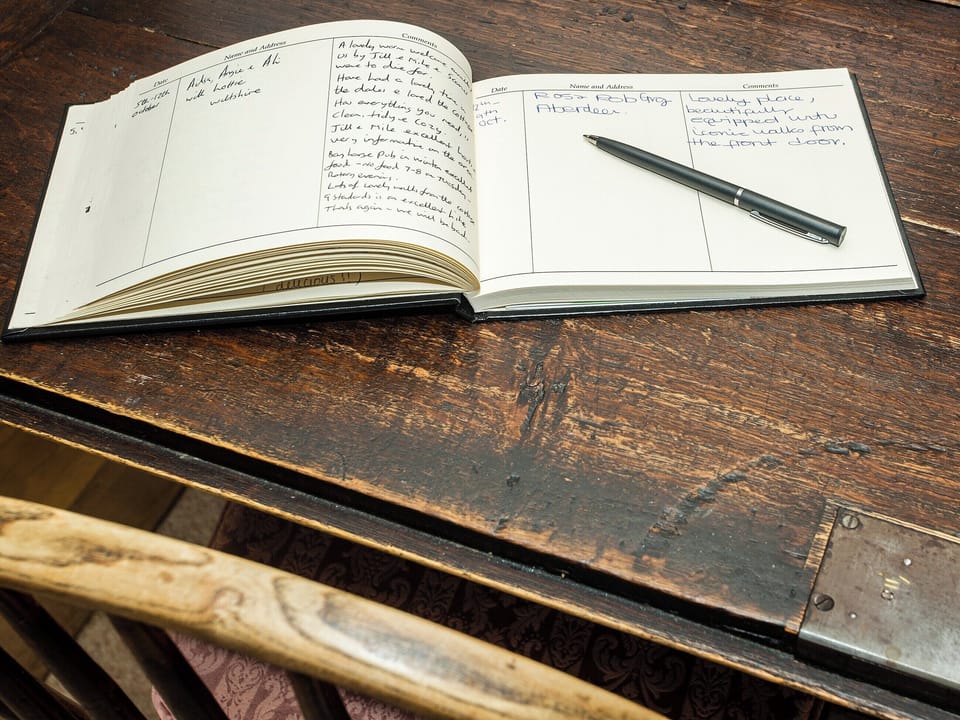 Date Name and Address Comments
5th-12th
october
Ailsa, Angie & Ali
with Lottie
wiltshire
A lovely warm welcome
us by Jill & Mike & scones
were to die for.
Have had a lovely time
the dales & loved the cottage
Has everything you need,
clean, tidy & cozy.
Jill & Mike excellent hosts
very informative on the area
Bay horse Pub in winton excellent
food - no food 7-8 on Tuesday -
Rotary evening.
Lots of lovely walks from the cottage
9 standards is an excellent hike
Thanks again - we will be back.
(delicious!!)
Date Name and Address Comments
oct.
Ross Rob Greg
Aberdeen.
Lovely place,
beautifully
equipped with
iconic walks from
the front door.